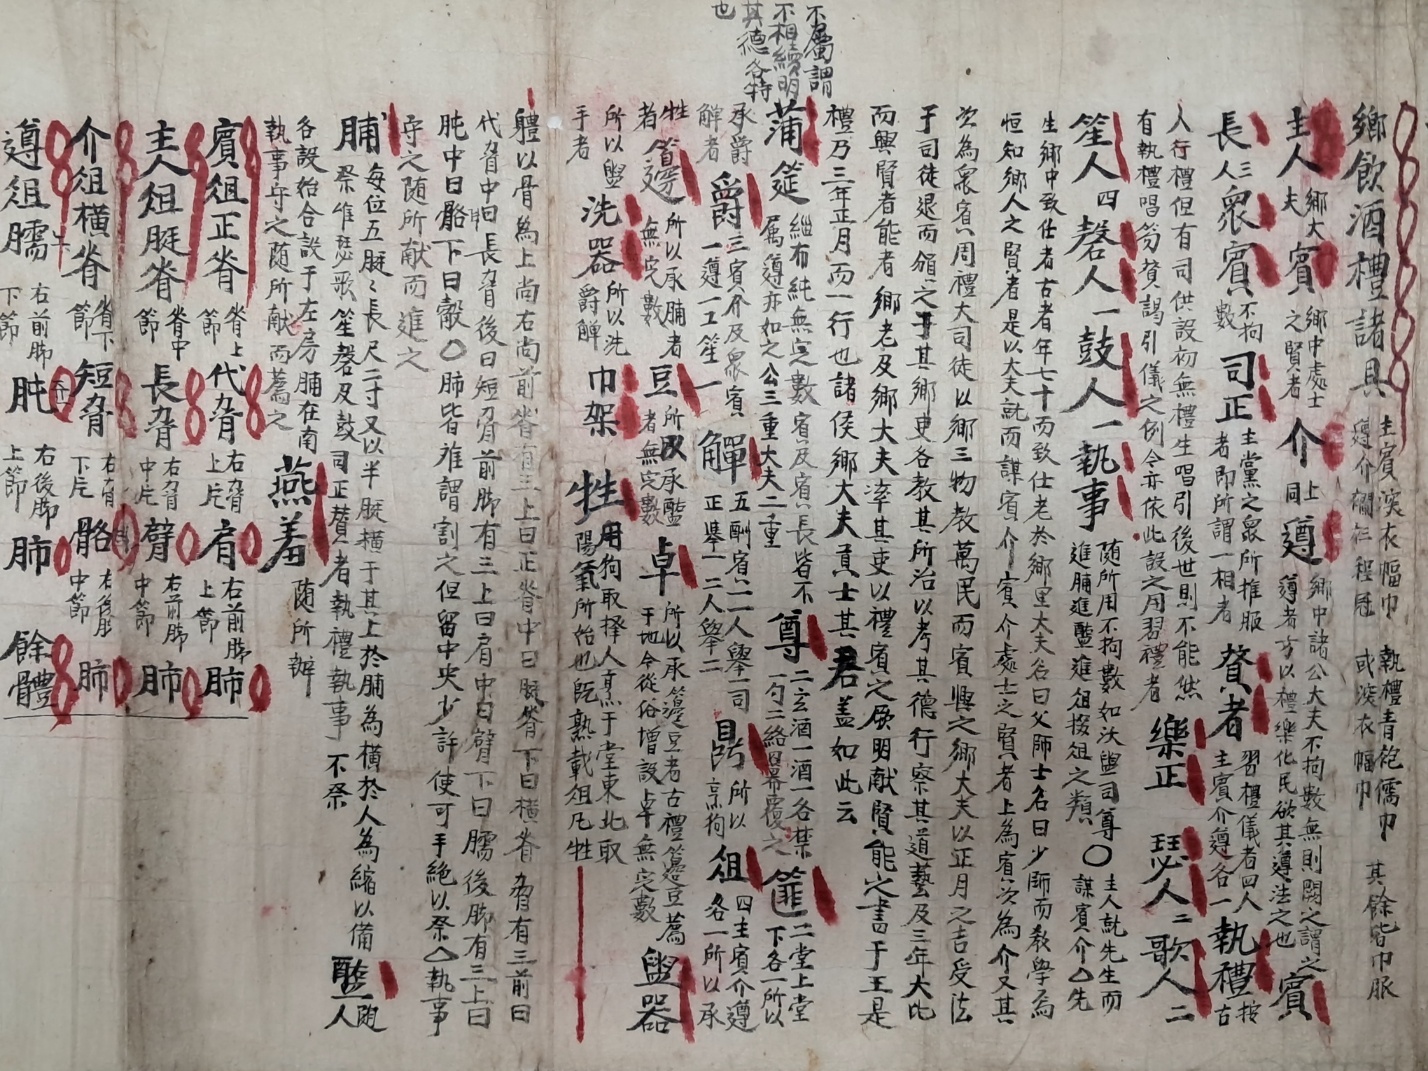 鄕飮酒禮諸具 主賓深衣幅巾 執禮靑袍儒巾 其餘皆巾服
遵介襴衫程冠 或深衣幅巾
主人 鄕大夫 賓 鄕中處士之賢者 介 上同 遵 鄕中諸公大夫不拘數無則闕之謂之遵者方以禮樂化民欲其遵法之也 賓
長 三人 衆賓 不拘數 司正 主黨之衆所推服者卽所謂一相者 贊者 習禮儀者四人主賓介遵各一 執禮 按古
人行禮但有司供設初無禮生唱引後世則不能然
有執禮唱笏贊謁引儀之例今亦依此設之用習禮者 樂正 瑟人二歌人二
笙人四磬人一鼓人一執事 隨所用不拘數如沃盥司尊進脯進醢進俎按俎之類 〇 主人就先生而謀賓介△先
生鄕中致仕者古者年七十而致仕老於鄕里大夫名曰父師士名曰少師而敎學焉
恒知鄕人之賢者是以大夫就而謀賓介賓介處士之賢者上爲賓次爲介又其
次爲衆賓周禮大司徒以鄕三物敎萬民而賓興之鄕大夫以正月之吉受法
于司徒退而頒之于其鄕吏各敎其所治以考其德行察其道藝及三年大比
而興賢者能者鄕老及鄕大夫率其吏以禮賓之厥明献賢能之書于王是
禮乃三年正月而一行也諸侯鄕大夫貢士其君盖如此云
不屬謂
不相續明
其德各特
也
蒲筵 緇布純無定數賓及賓長皆不屬遵亦如之公三重大夫二重 尊 二玄酒一酒一各禁一勺二綌冪覆之 篚 二堂上堂下各一所以
承爵觶者 爵 三賓介及衆賓一遵一工笙一 觶 五酬賓一二人擧一司正擧一二人擧二 鼎 所以烹狗 俎 四主賓介遵各一所以承
牲者 籩 所以承脯者無定數 豆 所以承醢者無定數 卓 所以承籩豆者古禮籩豆薦于地今從俗增設卓無定數 盥器
所以盥手者 洗器 所以洗爵觶 巾架 牲 用狗取擇人烹于堂東北取陽氣所始也旣熟載俎凡牲
體以骨爲上尚右尚前脊有三上曰正脊中曰脡脊下曰橫脊脅有三前曰
代脅中曰長脅後曰短脅前脚有三上曰肩中曰臂下曰臑後脚有三上曰
肫中曰骼下曰觳〇肺皆離謂割之但留中央少許使可手絶以祭△執事
守之隨所献而進之
脯 每位五脡脡長尺二寸又以半脡橫于其上於脯爲橫於人爲縮以備祭惟瑟歌笙磬及鼓司正贊者執禮執事不祭 醢 隨人
各設始合設于左房脯在南執事守之隨所献而薦之 燕羞 隨所辦
賓俎正脊 脊上節 代脅 右脅上片 肩 右前脚上節 肺
主人俎脡脊 脊中節 長脅 右脅中片 臂 右前脚中節 肺
介俎橫脊 脊下節 短脅 右脅下片 骼 右後脚中節 肺
遵俎臑 右前脚下節 肫 右後脚上節 肺 餘體